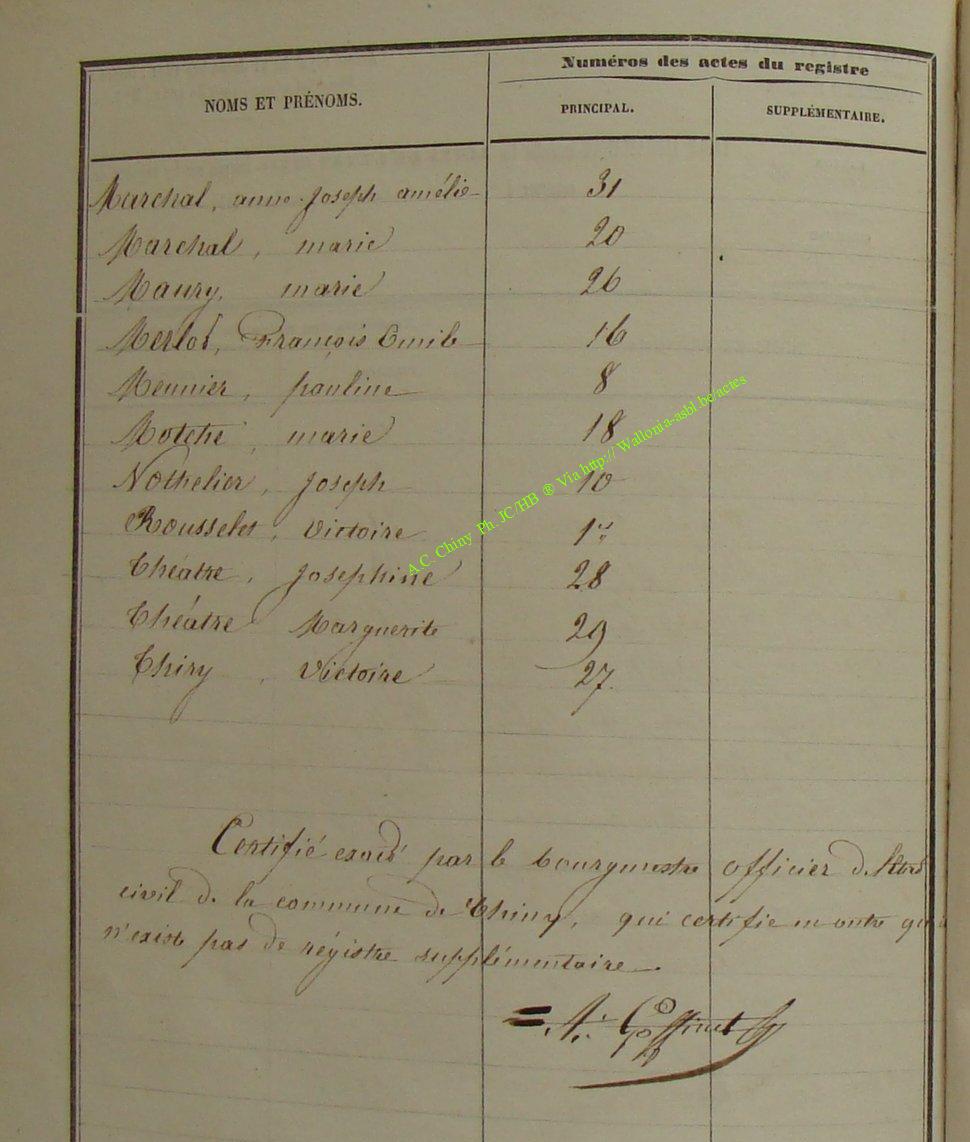 Numéros des actes du registre
NOMS ET PRÉNOMS. PRINCIPAL. SUPPLÉMENTAIRE.
Marchal, anne Joseph amélie 31
Marchal, marie 20
Maury, marie 26
Merlot, François Emile 16
Meunier, pauline 8
Motché, marie 18
Nothelier, Joseph 10
Rousselet, Victoire 1er
Théâtre, Josephine 28
Théâtre Marguerite 29
Thiry, Victoire 27.
A.C. Chiny Ph. JC/HB ® Via http:// Wallonia-asbl.be/actes
Certifié exact par le bourgmestre officier de l'état
civil de la commune de Chiny, qui certifie en outre qu'il
n'existe pas de régistre supplémentaire.